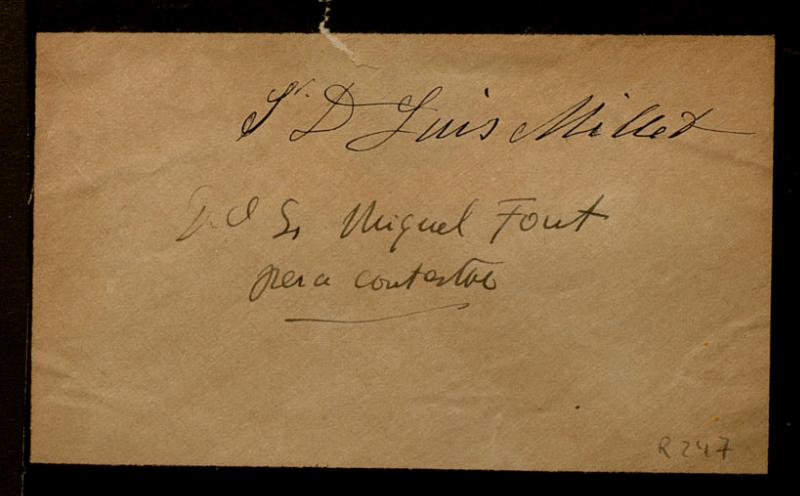 Sr. D Luis Millet
Del Sr Miquel Font
per a contestar
R 247